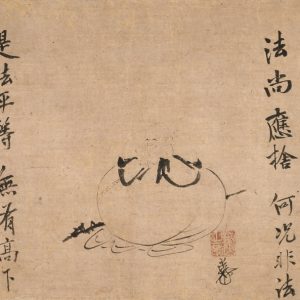 法尚應捨何况非法
是法平等無有高下